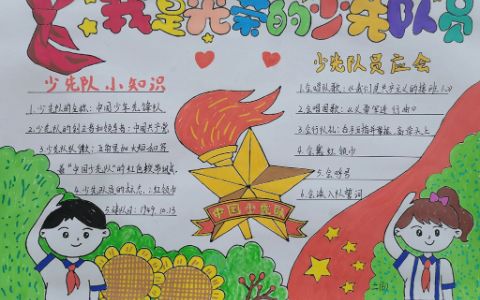 我是光荣的少先队员
少先队小知识
1.少先队的全称：中国少年先锋队
2.少先队的创立者和领导者：中国共产党
3.少先队队徽：五角星加火炬和写
有“中国少先队”的红色绶带组成
4.少先队员的标志：红领巾
5.建队日：1949.10.13
少先队员应会
1.会唱队歌：《我们是共产主义的接班人》
2.会唱国歌：《义勇军进行曲》
3.会行队礼：右手五指并拢，高举头上
4.会戴红领巾
5.会呼号
6.会读入队誓词
中国少先队